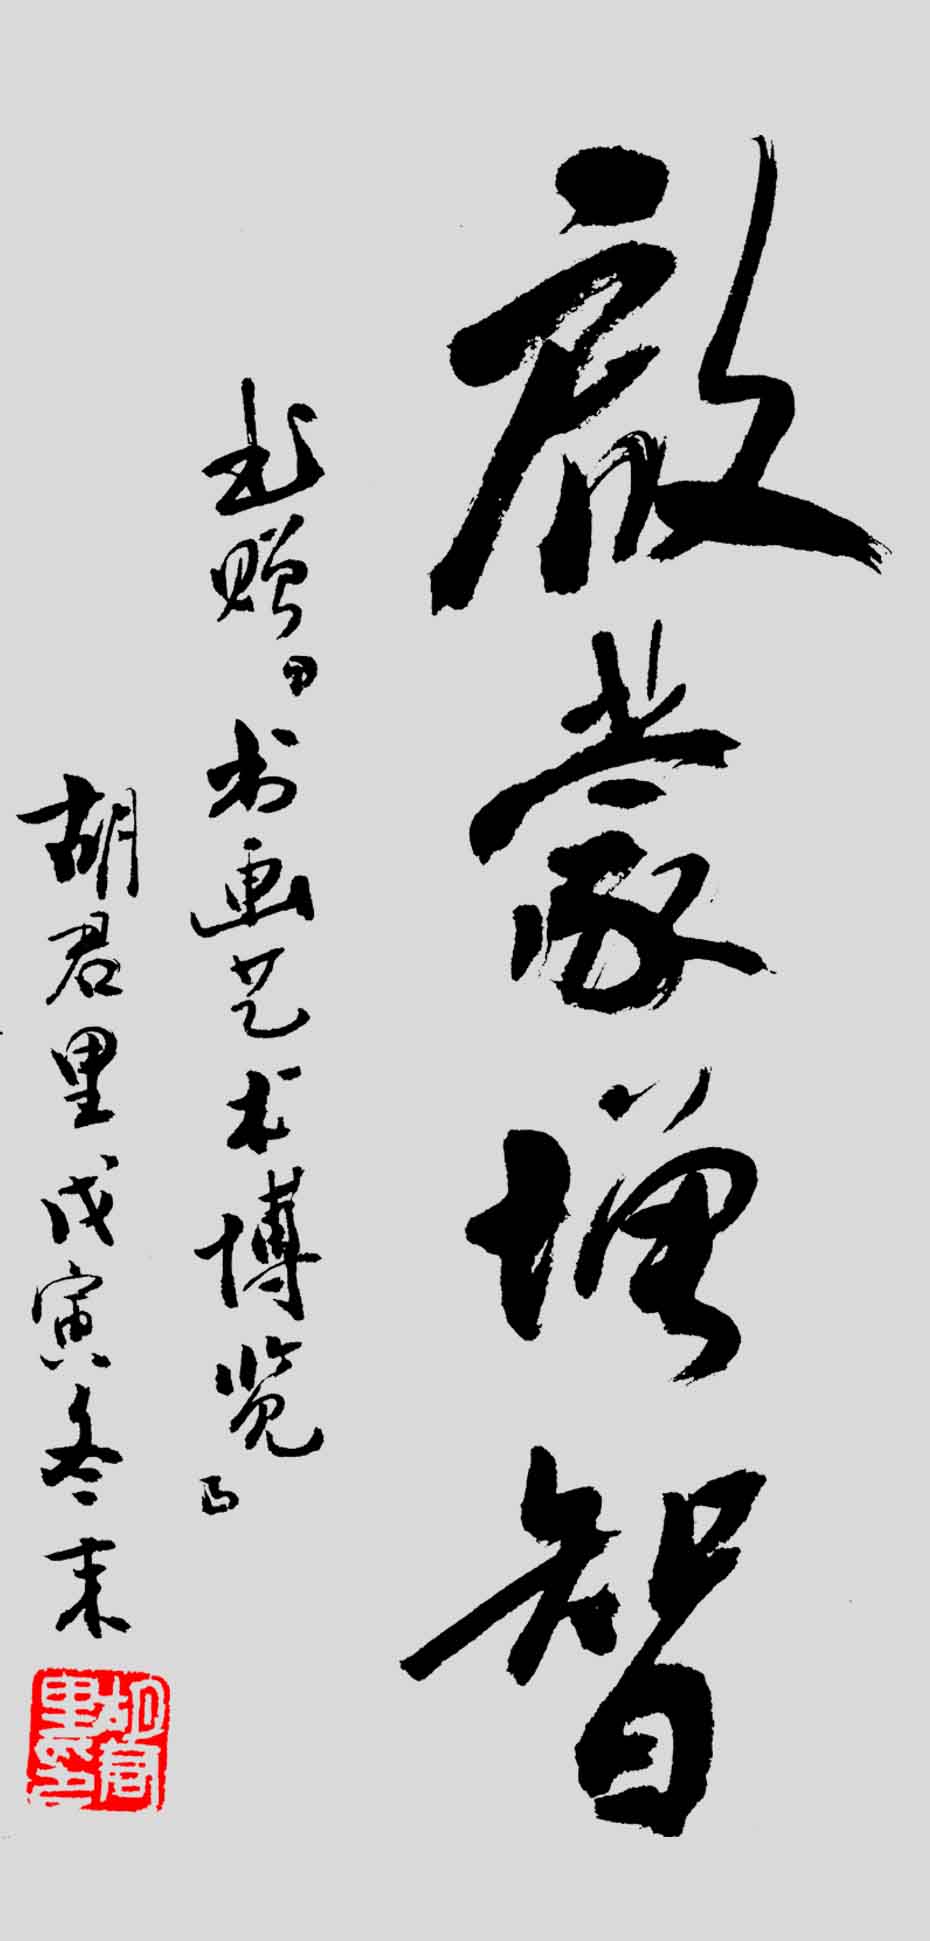 啟蒙增智
赠『书画艺术博览』
胡君里戊寅冬末
胡君里印